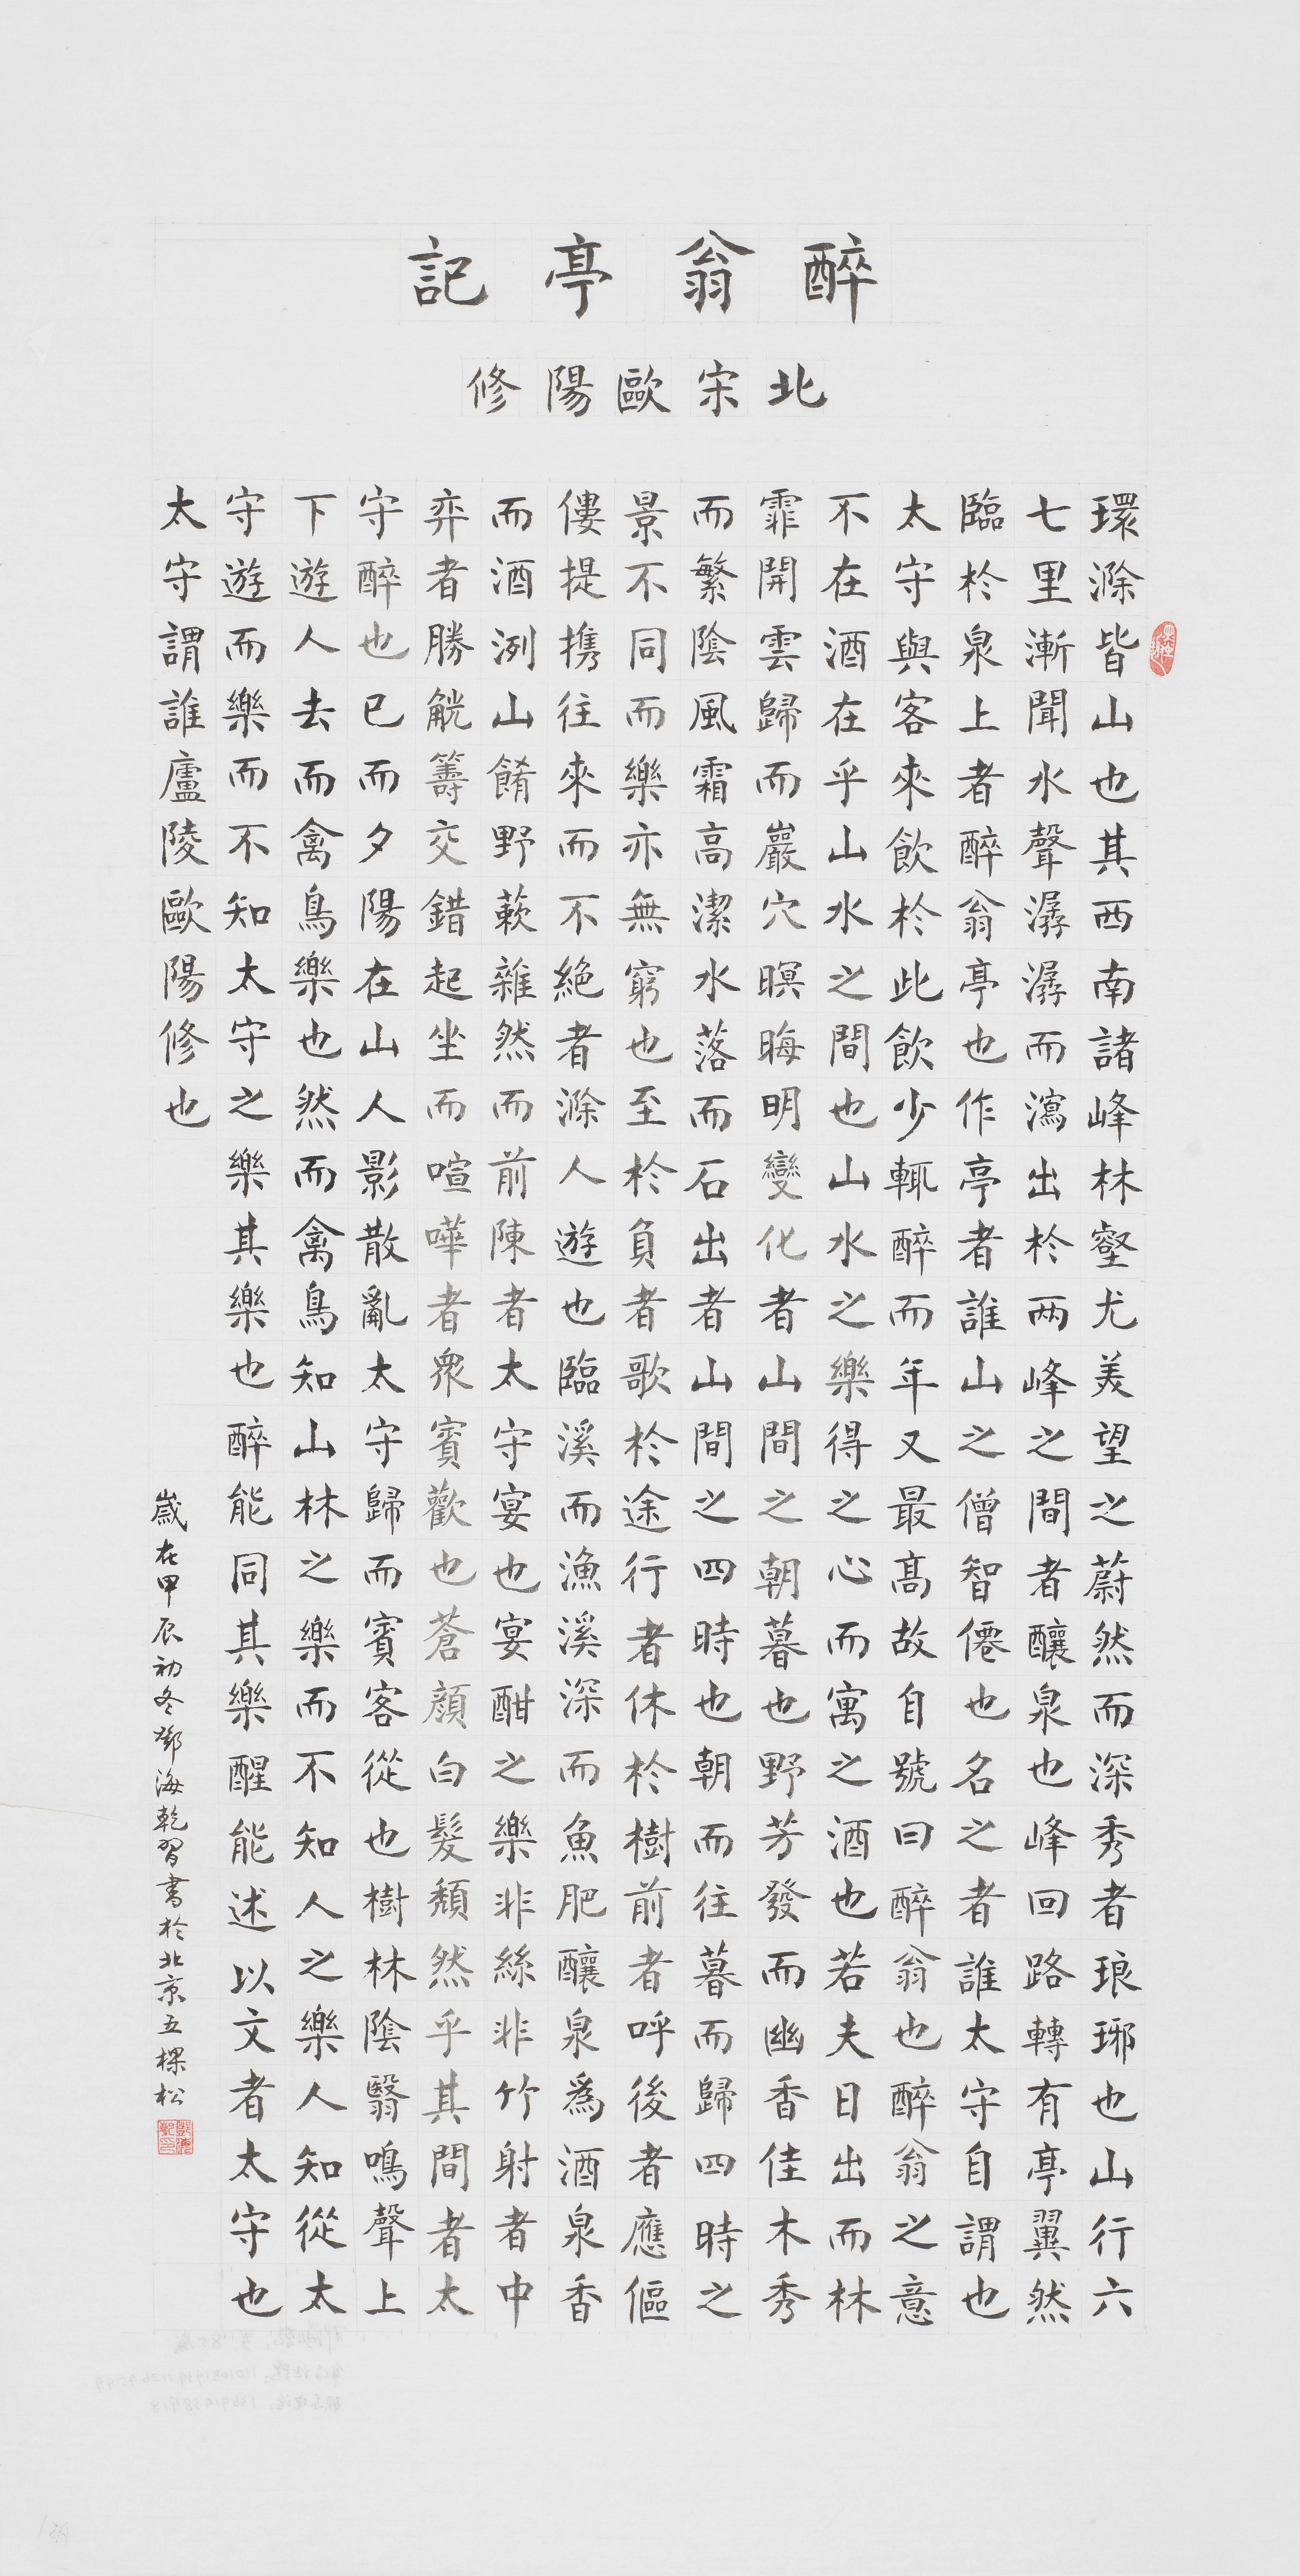 醉翁亭記
北宋歐陽修
環滁皆山也其西南諸峰林壑尤美望之蔚然而深秀者琅琊也山行六
七里漸聞水聲潺潺而瀉出於两峰之間者釀泉也峰回路轉有亭翼然
臨於泉上者醉翁亭也作亭者誰山之僧智僊也名之者誰太守自謂也
太守與客來飲於此飲少輒醉而年又最高故自號曰醉翁也醉翁之意
不在酒在乎山水之間也山水之樂得之心而寓之酒也若夫日出而林
霏開雲歸而巖穴暝晦明變化者山間之朝暮也野芳發而幽香佳木秀
而繁陰風霜高潔水落而石出者山間之四時也朝而往暮而歸四時之
景不同而樂亦無窮也至於負者歌於途行者休於樹前者呼後者應傴
僂提携往來而不絶者滁人遊也臨溪而漁溪深而魚肥釀泉爲酒泉香
而酒洌山餚野蔌雜然而前陳者太守宴也宴酣之樂非絲非竹射者中
弈者勝觥籌交錯起坐而喧嘩者眾賓歡也蒼顏白髮頹然乎其間者太
守醉也已而夕陽在山人影散亂太守歸而賓客從也樹林陰翳鳴聲上
下遊人去而禽鳥樂也然而禽鳥知山林之樂而不知人之樂人知從太
守遊而樂而不知太守之樂其樂也醉能同其樂醒能述以文者太守也
太守謂誰廬陵歐陽修也
歲在甲辰初冬鄧海乾習書於北京五棵松